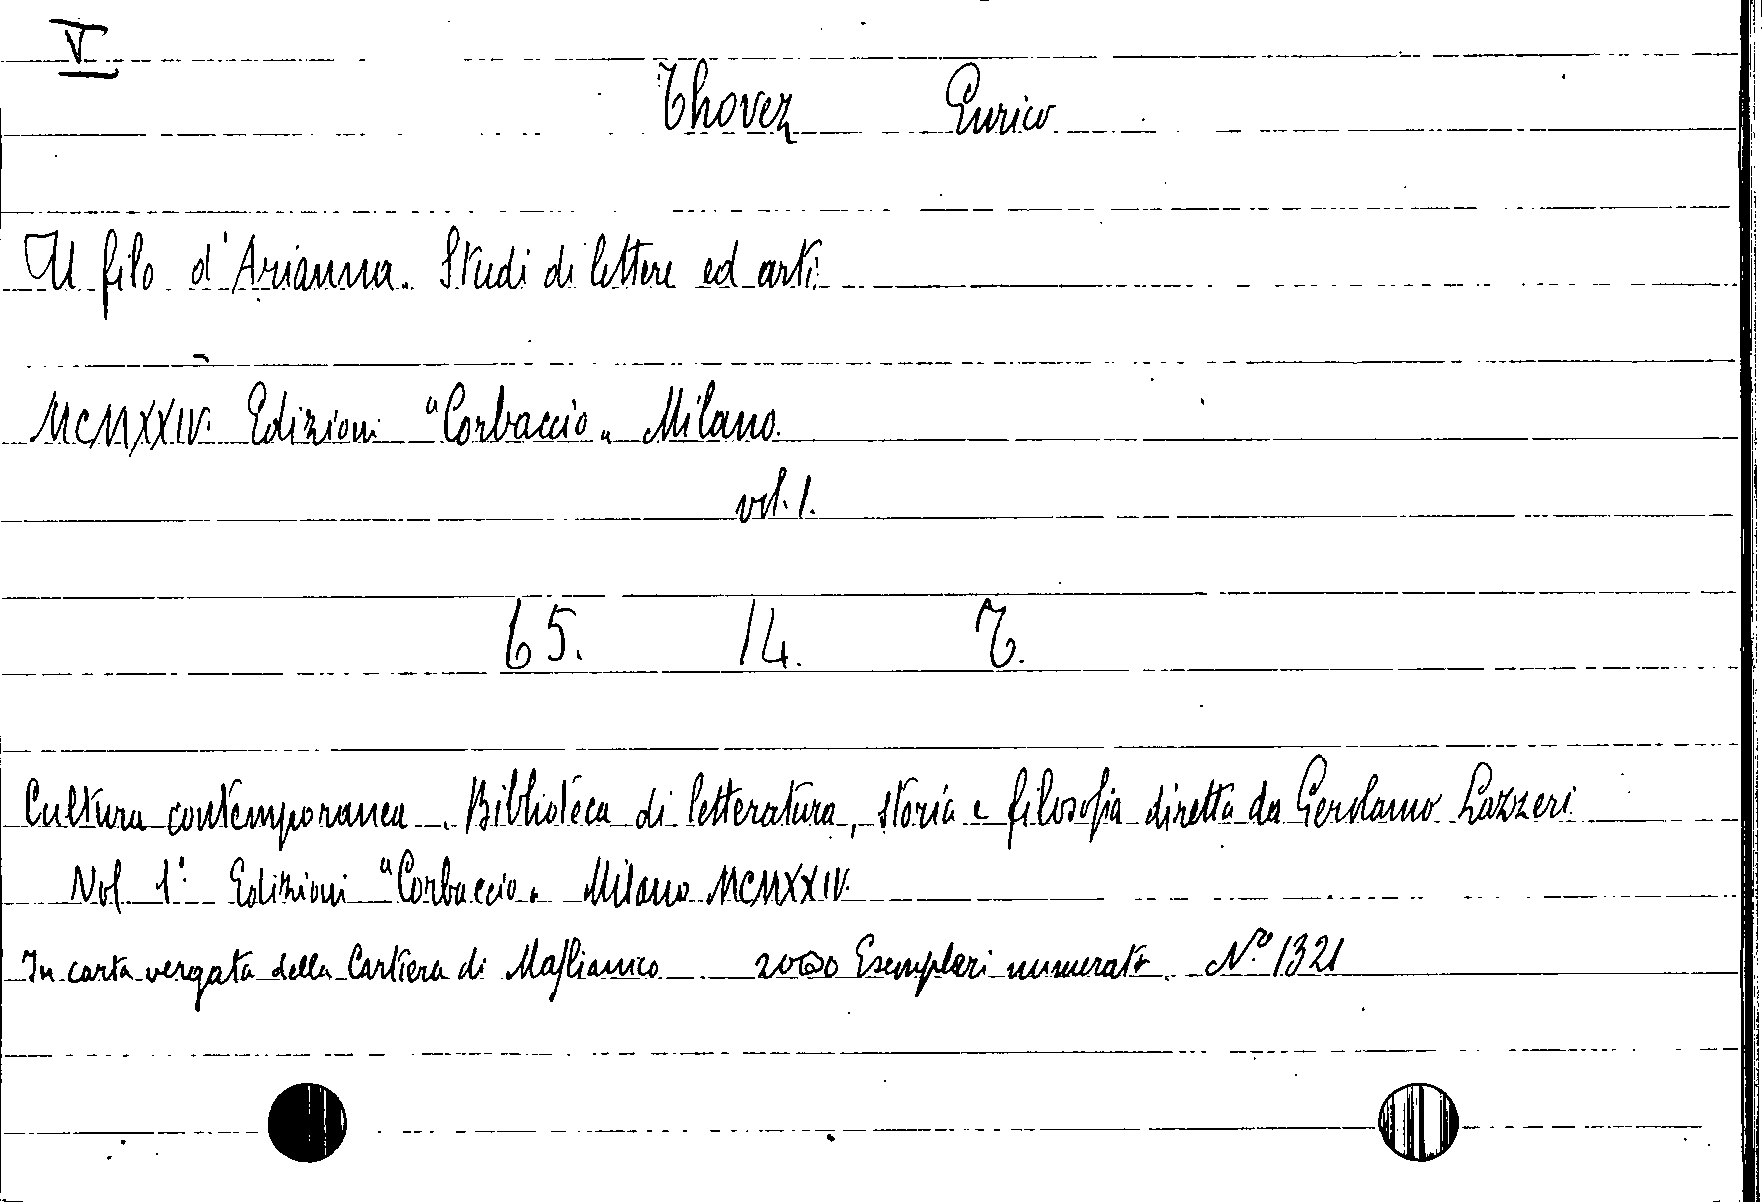 V
Thovez Enrico
Il filo d'Arianna. Studi di lettere ed arti.
MCMXXIV. Edizioni "Corbaccio" Milano.
vol. 1.
65. 14. T.
Cultura contemporanea. Biblioteca di letteratura, storia e filosofia diretta da Gerolamo Lazzeri
Vol 1° Edizioni "Corbaccio" Milano MCMXXIV.
In carta vergata della Cartiera di Maslianico 2000 Esemplari numerati. N.º 1321